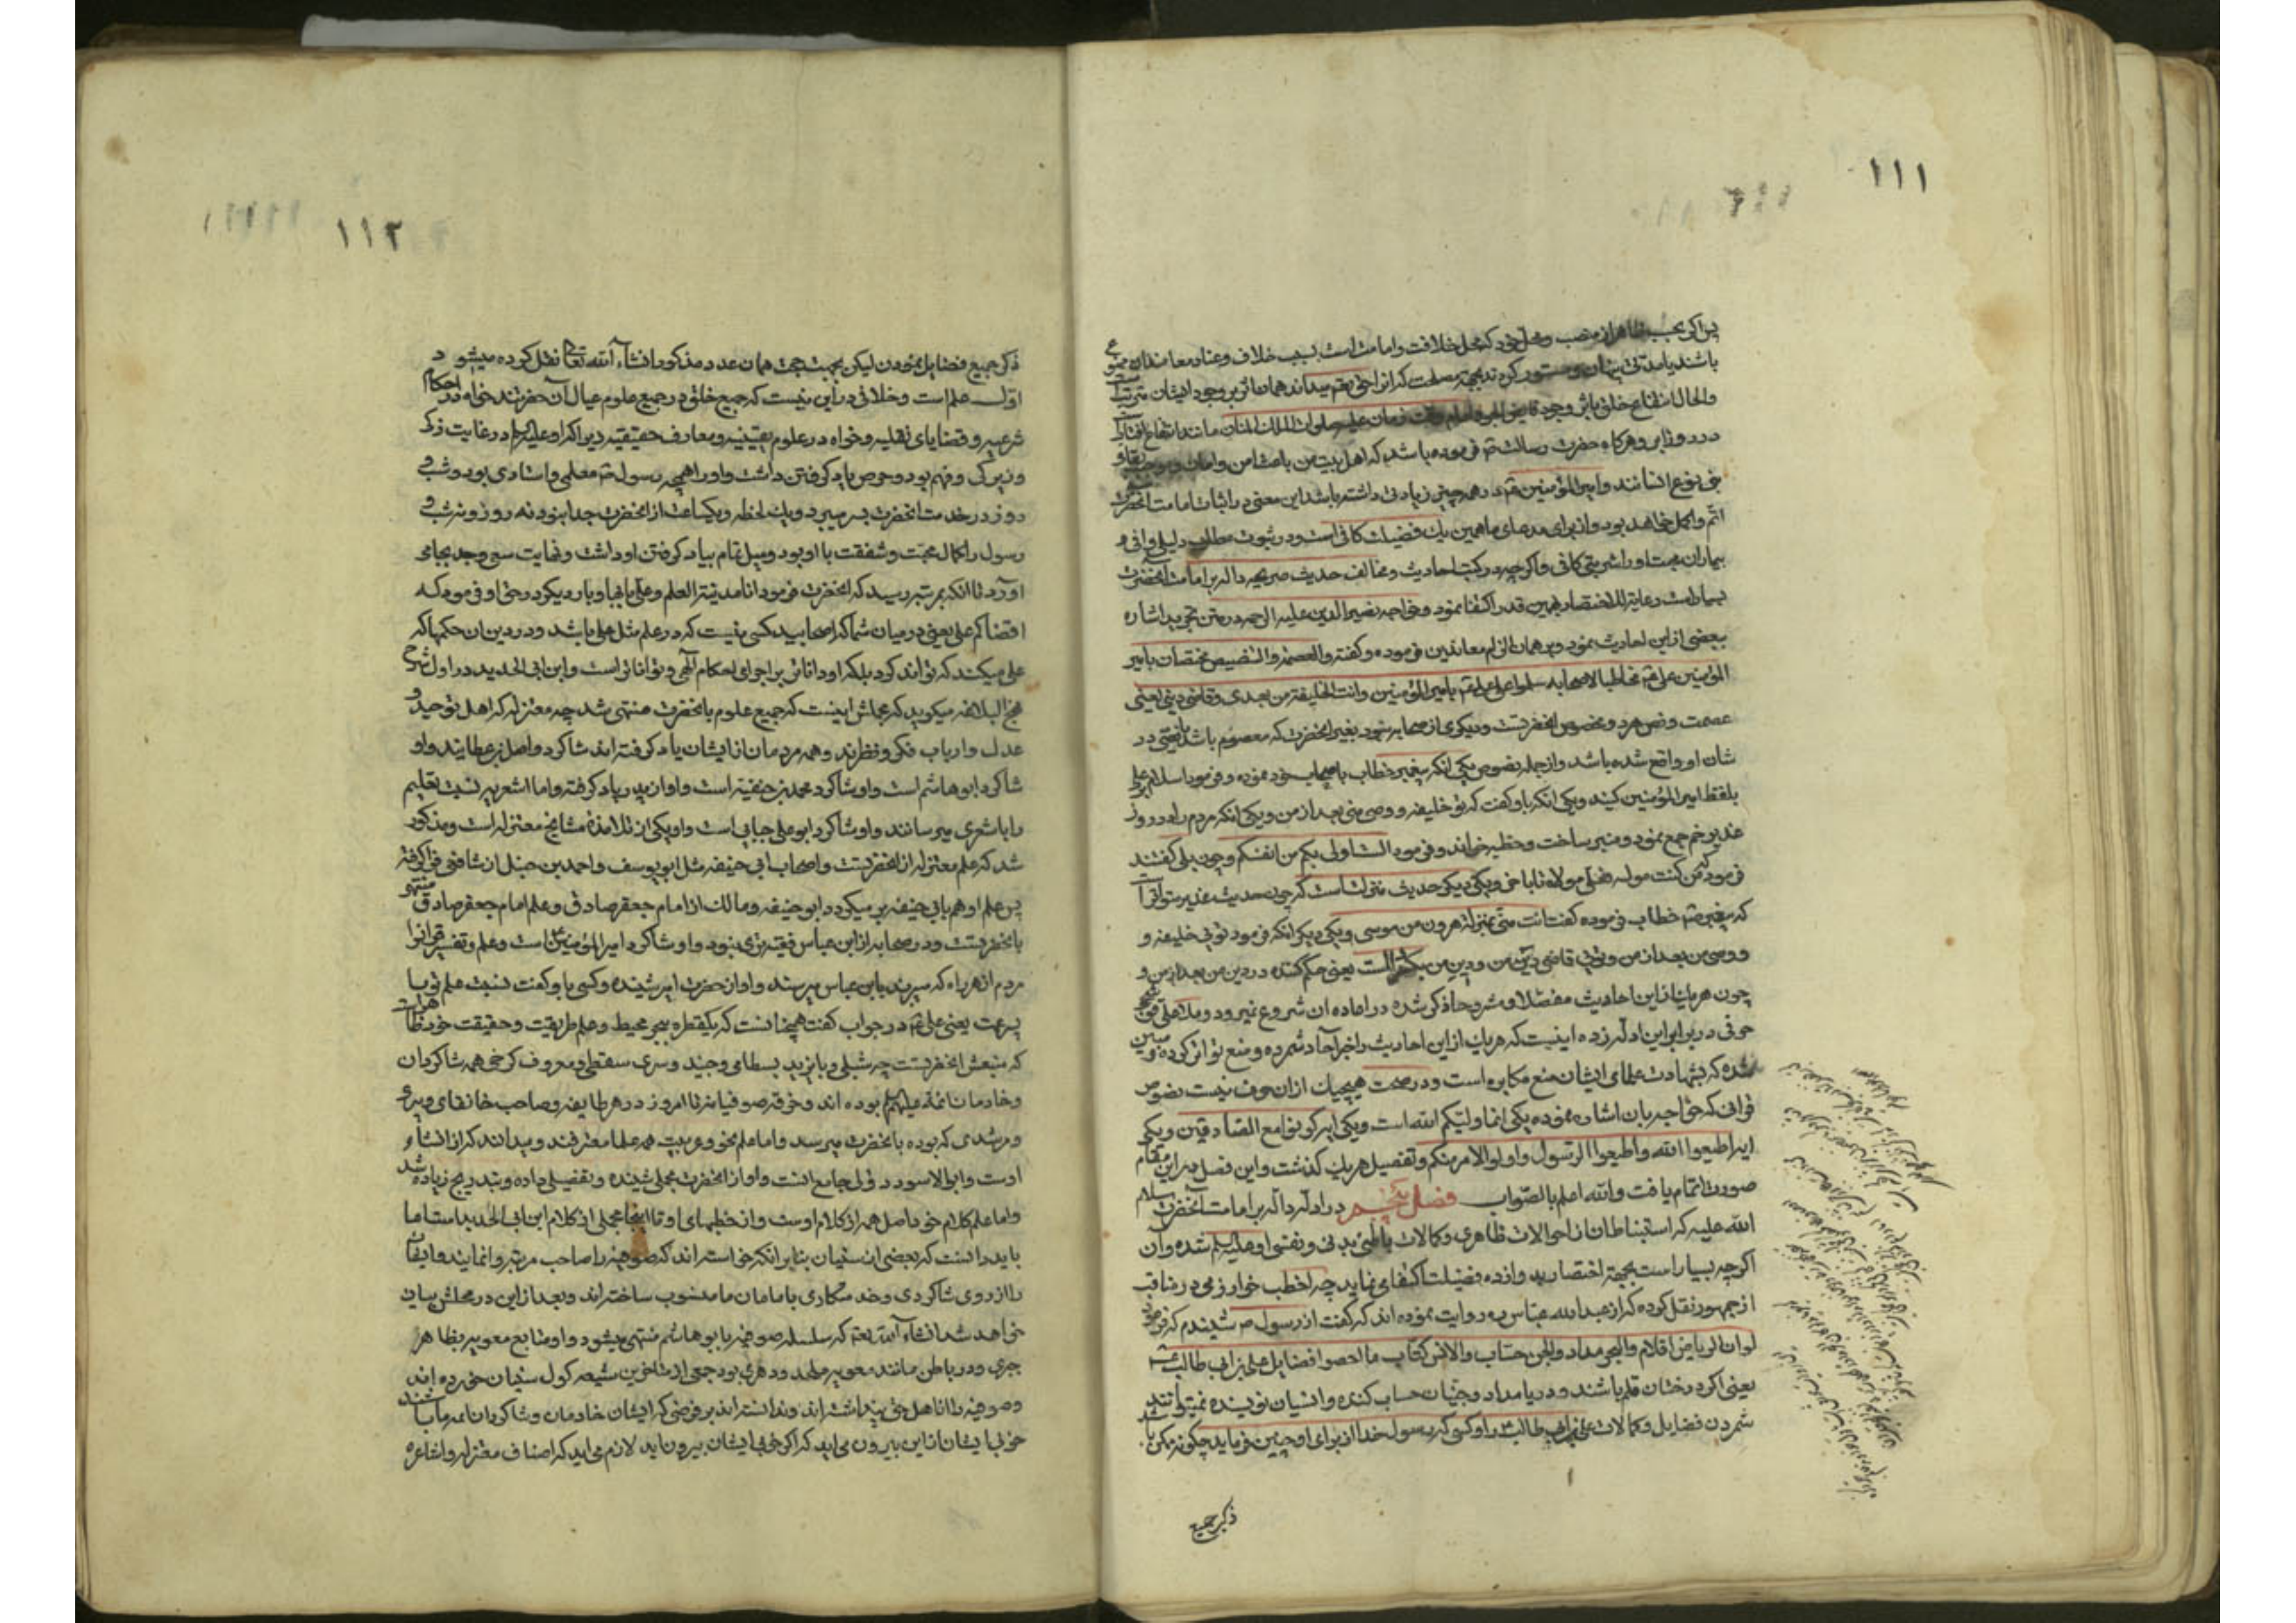 ۱۱۱
پس اگر بحسب ظاهر از منصب و محل خود که محل خلافت و امامت است بسبب خلاف و عناد معاندان ممنوع
باشند یا مدتی پنهان و مستور کردند بجهة مصلحت که انرا حق تعم میداند همان اثر بر وجود ایشان مترتب است
والحال انتفاع خلق باثر وجود وقت زمان علیه صلوات الملك المنان مانند انتفاع افتاب
در روز ابر و هرکاه حضرت رسالت صم فرموده باشد که اهل بیت من باعث امن و امان و بقا و
بنی نوع انسانند و امیر المؤمنین عم در همه چیز زیادتی داشته باشد این معنی در اثبات امامت انحضرت
اتم و اکمل خواهد بود و از برای مدعای ما همین یك فضیلت کافی است و در ثبوت مطلب دلیلی وافی و
بیماران محبت او را شربتی کافی و اکرچه در کتب احادیث و مخالف حدیث صریحه دالّه بر امامت انحضرت
بسیار است رعایة للاختصار بهمین قدر اکتفا نمود و خواجه نصیر الدین علیه الرحمه در متن تجرید اشاره
ببعضی از این احادیث نموده و برهمان الزام معاندین فرموده و کفته و العصمة و التنصیص مختصان بامیر
المؤمنین علی عم مخاطبا لاصحابه سلموا علی علی عم بامیر المؤمنین و انت الخلیفة من بعدی و قاضی دینی یعنی
عصمت و نص هر دو مخصوص انحضرتست و دیکری از صحابه نبود بغیر انحضرت که معصوم باشد یا نصی در
شان او واقع شده باشد و از جمله نصوص یکی انکه پیغمبر خطاب باصحاب خود نموده و فرمود سلام بر علی
بلفظ امیر المؤمنین کنید و یکی انکه باو کفت که تو خلیفه و وصی منی بعد از من و یکی انکه مردم را در روز
غدیر خم جمع نمود و منبر ساخت و خطبه خواند و فرمود الست اولی بکم من انفسکم و چون بلی کفتند
فرمود که من کنت مولاه فعلی مولاه تا باخر و یکی دیکر حدیث منزلت است که چون حدیث غدیر متواتر است
که پیغمبر صم خطاب فرموده کفت انت منی بمنزلة هرون من موسی و یکی دیکر انکه فرمود توئی خلیفه و
و وصی من بعد از من و توئی قاضی دین من و دین من یعنی حکم کننده در دین من بعد از من و
چون هر یك از این احادیث مفصلا و مشروحا ذکر شده در اعاده ان شروع نمیرود و ملا علی قوشجی
حرفی در برابر این ادله زده اینست که هر یك از این احادیث را خبر آحاد شمرده و منع تواتر کرده و مبین
شده که بشهادت علمای ایشان منع مکابره است و در صحت هیچیك از ان حرف نیست نصوص
قرانی که خواجه بان اشاره نموده یکی انما ولیکم الله است و یکی ایه کونوا مع الصادقین و یکی
ایه اطیعوا الله و اطیعوا الرسول و اولوا الامر منکم و تفصیل هر یك کذشت و این فصل در این مقام
صورت اتمام یافت و الله اعلم بالصواب فصل پنجم در ادله دالّه بر امامت انحضرت سلام
الله علیه که استنباط ان از احوالات ظاهری و کمالات باطنی بدنی و نفسی او علیه السلم شده و ان
اکرچه بسیار است بجهة اختصار بدوازده فضیلت اکتفا می نماید چه اخطب خوارزمی در مناقب
از جمهور نقل کرده که از عبد الله عباس ره روایت نموده اند که کفت از رسول ص شنیدم که فرمود
لو ان الریاض اقلام و البحر مداد و الجن حسّاب و الانس کتّاب ما احصوا فضایل علی بن ابی طالب ع
یعنی اکر درختان قلم باشند و دریا مداد و جنیان حساب کننده و انسیان نویسنده نمیتوانند
شمردن فضایل و کمالات علی بن ابی طالب ع را و کسی که رسول خدا از برای او چنین فرماید چکونه ممکن باشد
ذکر جمیع
۱۱۲
ذکر جمیع فضایل نمودن لیکن بجهت حجت همان عدد مذکور انشاء الله تعالی نقل کرده میشود
اوّل علم است و خلافی در این نیست که جمیع خلق در جمیع علوم عیال آن حضرتند خواه در احکام
شرعیه و قضایای نقلیه و خواه در علوم یقینیه و معارف حقیقیه زیرا که او علیه السلم در غایت زکا
و زیرکی و فهم بود و حرص بیاد کرفتن داشت و او را همچه رسول صم معلمی و استادی بود و شب و
روز در خدمت انحضرت بسر میبرد و یك لحظه و یکساعت از انحضرت جدا نبود نه روز و نه شب و
رسول را کمال محبت و شفقت با او بود و میل تمام بیاد کرفتن او داشت و نهایت سعی و جد بجای
آورد تا انکه بمرتبه رسید که انحضرت فرمود انا مدینة العلم و علی بابها و بار دیکر در حق او فرمود که
اقضاکم علی یعنی در میان شما که اصحابید کسی نیست که در علم مثل علی باشد و در دین ان حکمها که
علی میکند که تواند کرد بلکه او داناتر بر اجرای احکام الهی و تواناتر است و ابن ابی الحدید در اول شرح
نهج البلاغه میکوید که مجملش اینست که جمیع علوم بانحضرت منتهی شد چه معتزله که اهل توحید و
عدل و ارباب فکر و نظرند و همه مردمان از ایشان یاد کرفته اند شاکرد واصل بن عطایند و او
شاکرد ابو هاشم است و او شاکرد محمد بن حنفیه است و او از پدر یاد کرفته و اما اشعریه نسبت تعلیم
را باشعری میرسانند و او شاکرد ابو علی جبایی است و او یکی از تلامذهٔ مشایخ معتزله است و مذکور
شد که علم معتزله از انحضرتست و اصحاب ابی حنیفه مثل ابو یوسف و احمد بن حنبل از شافعی فرا کرفته
پس علم او هم بابی حنیفه بر میکردد و ابو حنیفه و مالك از امام جعفر صادق و علم امام جعفر صادق منتهی
بانحضرتست و در صحابه از ابن عباس فقیه تری نبود و او شاکرد امیر المؤمنین است و علم و تفسیر قرانرا
مردم از هر راه که میبرند بابن عباس میرسند و او از حضرت امیر شنیده و کسی باو کفت نسبت علم تو با
پسر عمت یعنی علی عم در جواب کفت همچنانست که یکقطره ببحر محیط و علم طریقت و حقیقت خود ظاهر است
که منبعش انحضرتست چه شبلی و بایزید بسطامی و جنید و سری سقطی و معروف کرخی همه شاکردان
و خادمان ائمه علیهم السلم بوده اند و خرقه صوفیانه تا امروز در هر طایفه و صاحب خانقاهی و پیری
و مرشدی که بوده بانحضرت میرسد و اما علم نحو و عربیت همه علما معترفند و میدانند که از انشاء
اوست و ابو الاسود دؤلی جامع انست و او از انحضرت مجملی شنیده و تفصیلی داده و بتدریج زیاده شد
و اما علم کلام خود اصل همه از کلام اوست و از خطبهای او تا اینجا مجملی از کلام ابن ابی الحدید است اما
باید دانست که بعضی از سنیان بنابر انکه خواسته اند که صوفیه را صاحب مرتبه وانمایند و ایشان
را از روی شاکردی و خدمتکاری بامامان ما منسوب ساخته اند و بعد از این در محلش بیان
خواهد شد انشاء الله تعم که سلسله صوفیه بابو هاشم منتهی میشود و او متابع معویه بظاهر
جبری و در باطن مانند معویه ملحد و دهری بود جمعی از متاخرین شیعه کول سنیان خورده اند
و صوفیه را از اهل حق پنداشته اند و ندانسته اند بر فرضی که ایشان خادمان و شاکردان ائمه ما باشند
خوبی ایشان از این بیرون می اید که اکر خوبی ایشان بیرون اید لازم می اید که اصناف معتزله و اشاعره